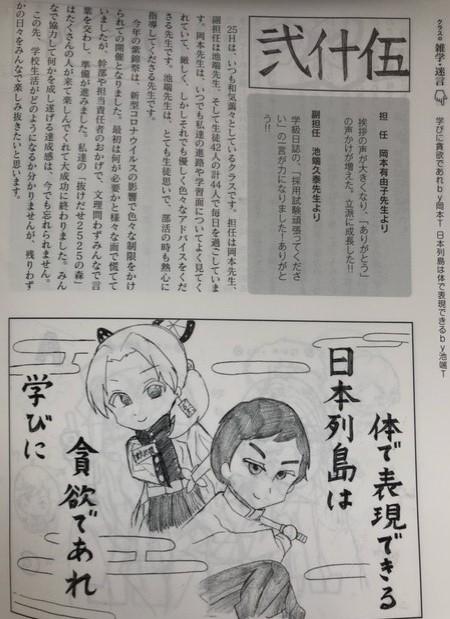 クラスの 雑学・迷言
学びに貪欲であれｂｙ岡本Ｔ 日本列島は体で表現できるｂｙ池端Ｔ
弐什伍
担 任 岡本有由子先生より
挨拶の声が大きくなり、「ありがとう」
の声かけが増えた。立派に成長した!!
副担任 池端久泰先生より
学級日誌の、「採用試験頑張ってくださ
い」の一言が力になりました！ありがと
う!!
25日は、いつも和気藹々としているクラスです。担任は岡本先生、
副担任は池端先生、そして生徒42人の計44人で毎日を過ごしていま
す。岡本先生は、いつでも私達の進路や学習面についてよく見てく
れていて、厳しく、しかしそれでも優しく色々なアドバイスをくだ
さる先生です。池端先生は、とても生徒思いで、部活の時も熱心に
指導してくださる先生です。
今年の紫錦祭は、新型コロナウイルスの影響で色々な制限をかけ
られての開催となりました。最初は何が必要かと様々な面で慌てて
いましたが、幹部や担当責任者のおかげで、文理問わずみんなで言
葉を交わし、準備が進みました。私達の「抜けだせ2525の森」
はたくさんの人が来て楽しんでくれて大成功に終わりました。みん
なで協力して何かを成し遂げる達成感は、今でも忘れられません。
この先、学校生活がどのようになるか分かりませんが、残りわず
かの日々をみんなで楽しみ抜きたいと思います。
体で表現できる
日本列島は
貪欲であれ
学びに